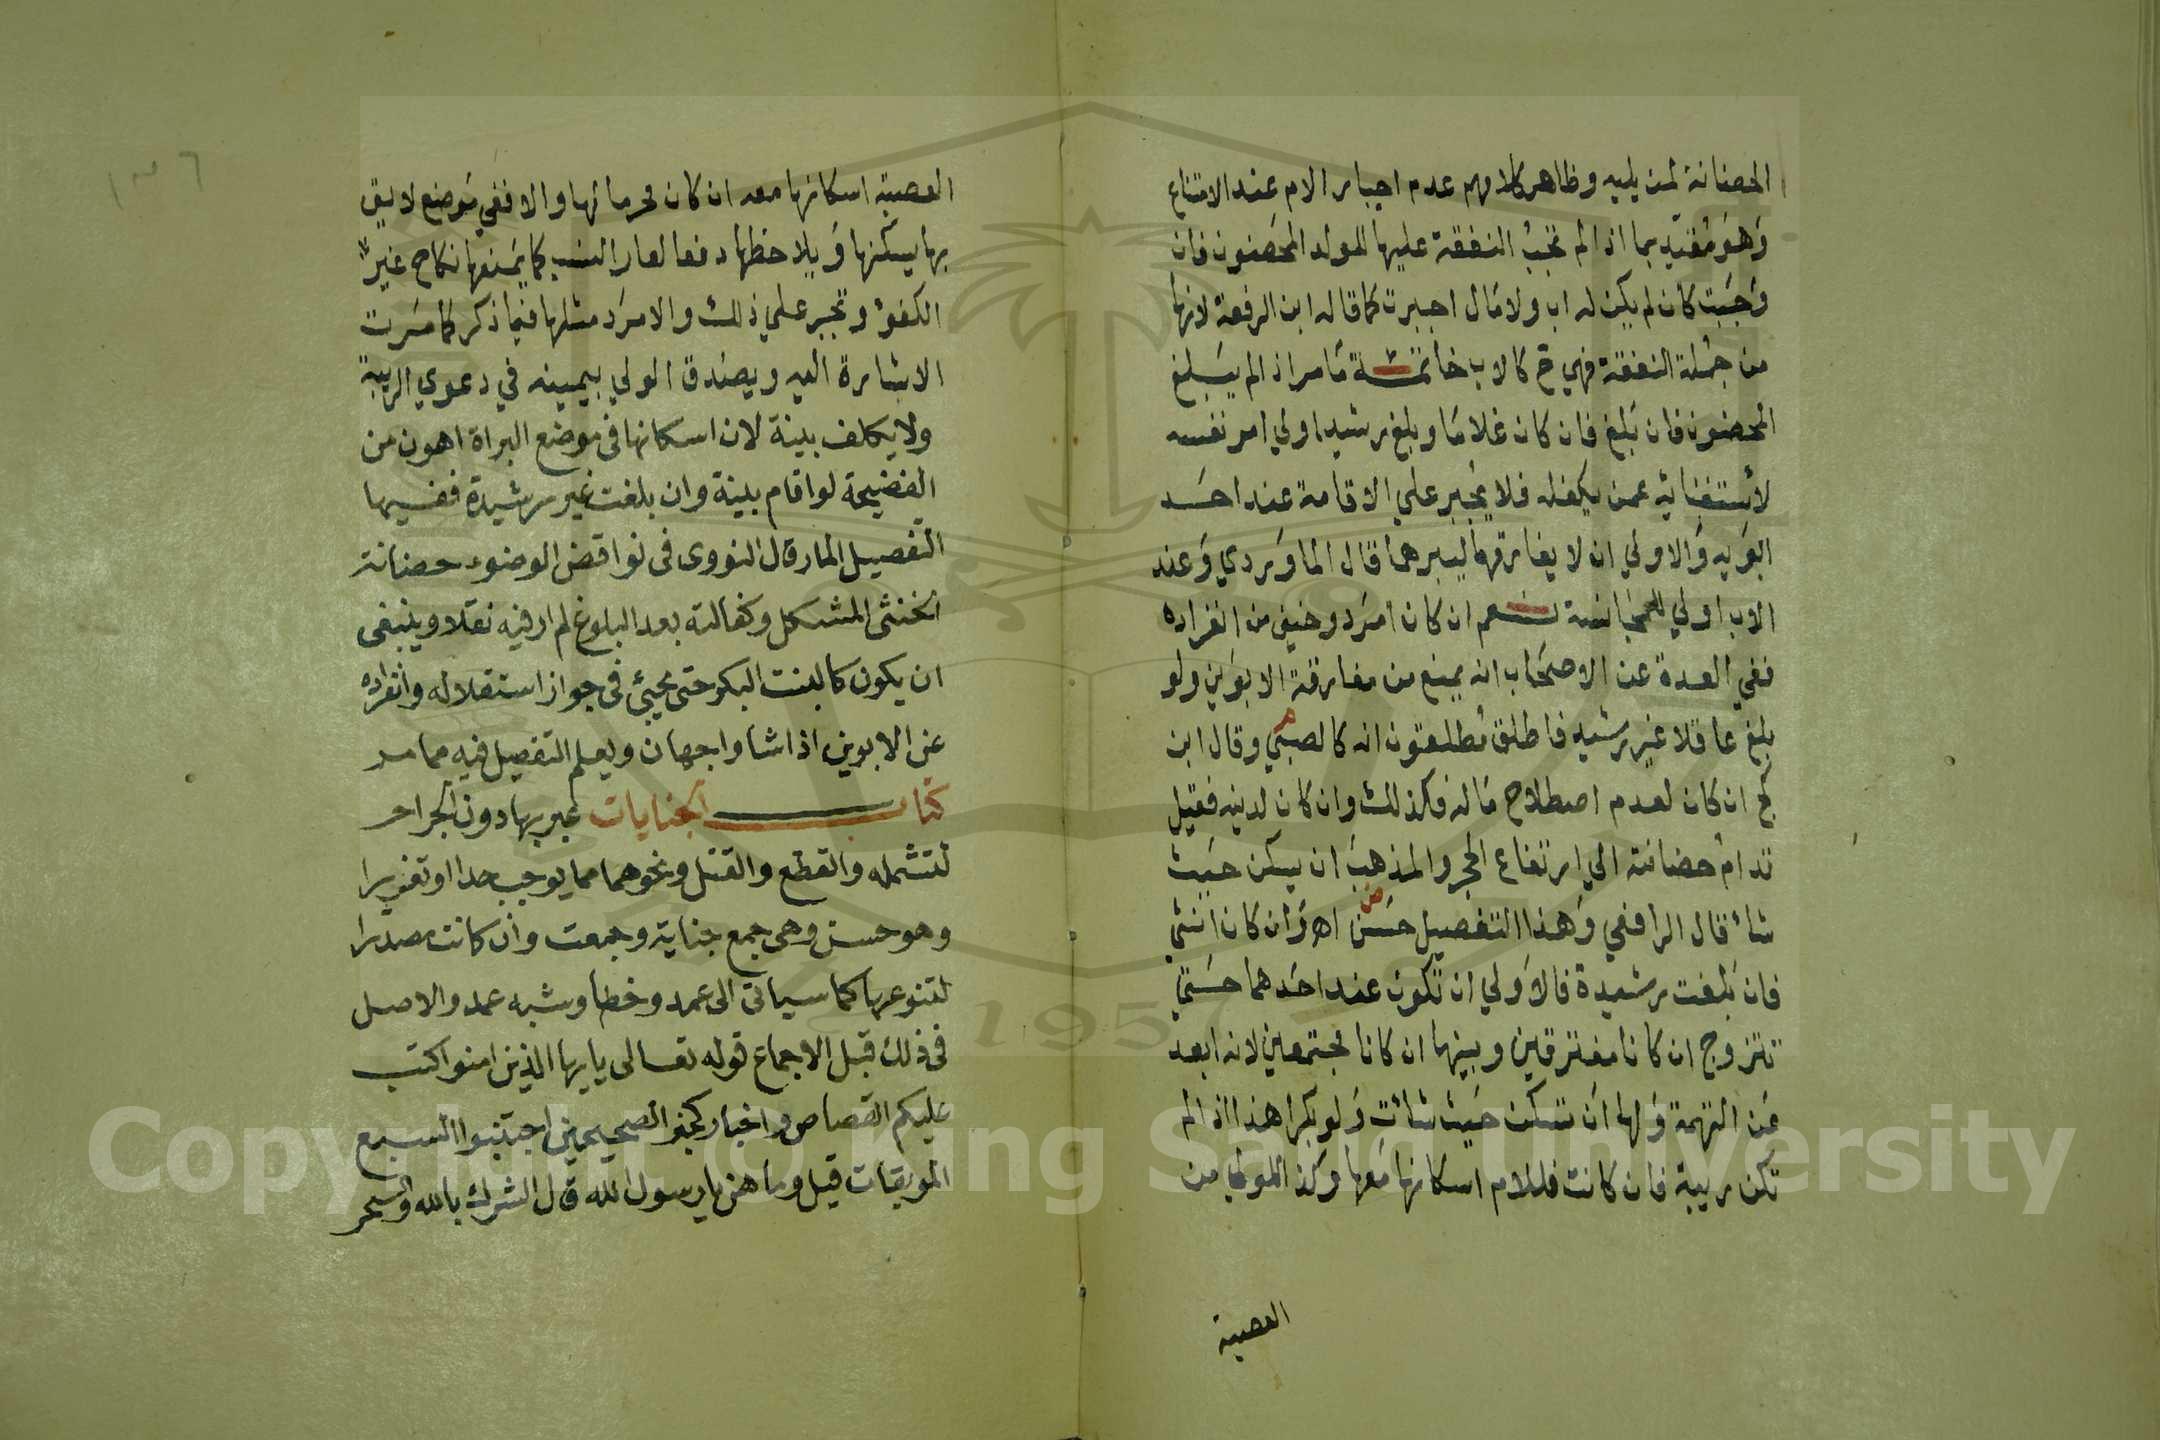 الحضانة لمن يليه وظاهر كلامهم عدم اجبار الام عند الامتناع
وهو مقيد بما اذا لم تجب النفقة عليها للولد المحضون فان
وجبت كان لم يكن له اب ولا مال اجبرت كما قاله ابن الرفعة لانها
من جملة النفقة فهي ح كالاب خاتمة ما مر اذا لم يبلغ
المحضون فان بلغ فان كان غلاما وبلغ رشيدا ولي امر نفسه
لاستغنائه عمن يكفله فلا يجبر على الاقامة عند احد
ابويه والاولي ان لا يفارقهما ليبرهما قال الماوردي وعند
الاب اولي للمجانسة نعم ان كان امرد وخيف من انفراده
ففي العدة عن الاصحاب انه يمنع من مفارقة الابوين ولو
بلغ عاقلا غير رشيد فاطلق مطلقون انه كالصبي وقال ابن
كج ان كان لعدم اصطلاح ماله فكذلك وان كان لدينه فقيل
تدام حضانته الي ارتفاع الحجر والمذهب ان يسكن حيث
شاء قال الرافعي وهذا التفصيل حسن اهـ وان كان انثي
فان بلغت رشيدة فالاولي ان تكون عند احدهما حتي
تتزوج ان كانا مفترقين وبينهما ان كانا مجتمعين لانه ابعد
عن التهمة ولها ان تسكن حيث شاءت ولو بكرا هذا اذا لم
تكن ريبة فان كانت فللام اسكانها معها وكذا للولي من
العصبة
١٣٦
العصبة اسكانها معه ان كان محرما لها والا ففي موضع لايق
بها يسكنها ويلاحظها دفعا لعار النسب كما يمنعها نكاح غير
الكفؤ وتجبر علي ذلك والامرد مثلها فيما ذكر كما مرت
الاشارة اليه ويصدق الولي بيمينه في دعوي الريبة
ولا يكلف بينة لان اسكانها فى موضع البراة اهون من
الفضيحة لو اقام بينة وان بلغت غير رشيدة ففيها
التفصيل المار قال النووى فى نواقض الوضوء حضانة
الخنثى المشكل وكفالته بعد البلوغ لم ار فيه نقلا وينبغى
ان يكون كالبنت البكر حتى يجيئ فى جواز استقلاله وانفراده
عن الابوين اذا شا وجهان ويعلم التفصيل فيه مما مر
كتاب الجنايات عبر بها دون الجراح
لتشمله والقطع والقتل ونحوهما مما يوجب حدا او تعزيرا
وهو حسن وهى جمع جناية وجمعت وان كانت مصدرا
لتنوعها كما سياتى الى عمد وخطا وشبه عمد والاصل
فى ذلك قبل الاجماع قوله تعالى يايها الذين امنوا كتب
عليكم القصاص واخبار كخبر الصحيحين اجتنبوا السبع
الموبقات قيل وما هن يا رسول الله قال الشرك بالله والسحر
1957
Copyright © King Saud University